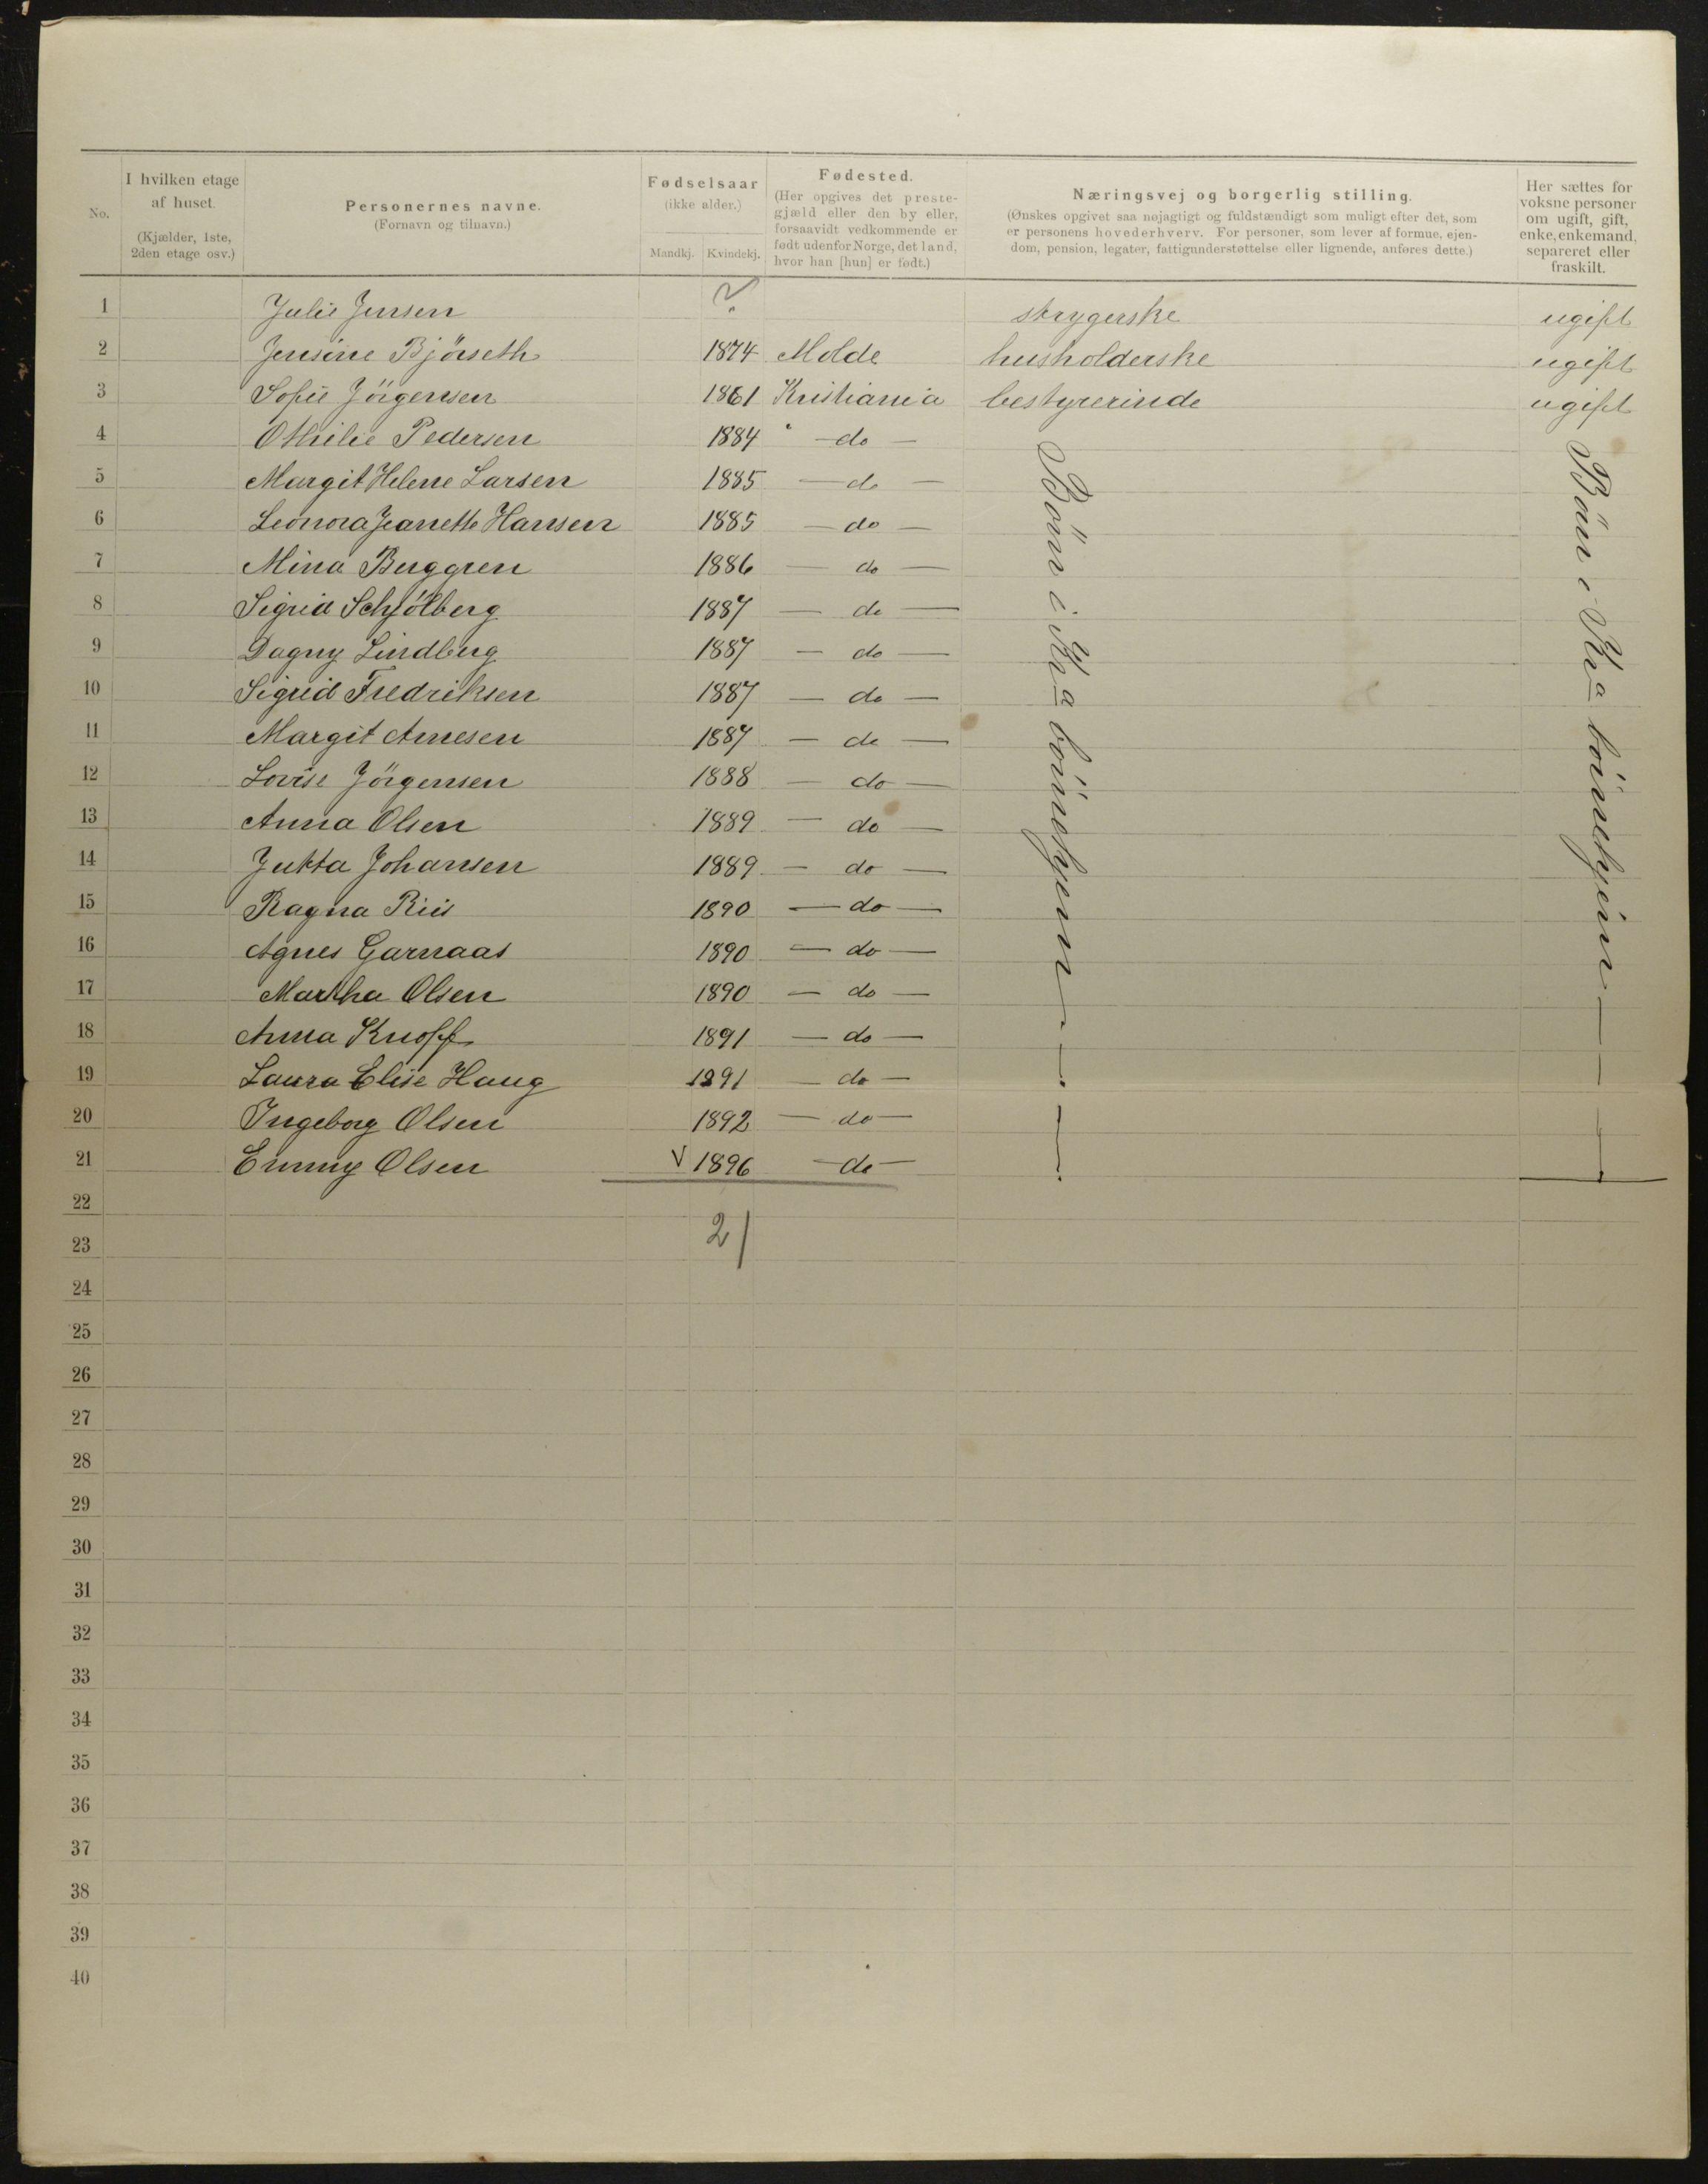 No.
I hvilken etage af huset. (Kjælder, 1ste, 2den etage osv.)
Personernes navne. (Fornavn og tilnavn.)
Fødselsaar (ikke alder.)
Mandkj. Kvindekj.
Fødested. (Her opgives det prestegjæld eller den by eller, forsaavidt vedkommende er født udenfor Norge, det land, hvor han [hun] er født.)
Næringsvej og borgerlig stilling.
(Ønskes opgivet saa nøjagtigt og fuldstændigt som muligt efter det, som er personens hovederhverv. For personer, som lever af formue, ejendom, pension, legater, fattigunderstøttelse eller lignende, anføres dette.)
Her sættes for voksne personer om ugift, gift, enke, enkemand, separeret eller fraskilt.
1 Julie Jensen ? strygerske ugift
2 Jensine Björseth 1874 Molde husholderske ugift
3 Sofie Jörgensen 1861 Kristiania bestyrerinde ugift
4 Othilie Pedersen 1884 " — do —
5 Margit Helene Larsen 1885 — do —
6 Leonora Jeanette Hansen 1885 — do —
7 Mina Berggren 1886 — do —
8 Sigrid Schjölberg 1887 — do —
9 Dagny Lindberg 1887 — do —
10 Sigrid Fredriksen 1887 — do —
11 Margit Arnesen 1887 — do —
12 Lovise Jörgensen 1888 — do —
13 Anna Olsen 1889 — do —
14 Jukta Johansen 1889 — do —
15 Ragna Riis 1890 — do —
16 Agnes Garnaas 1890 — do —
17 Martha Olsen 1890 — do —
18 Anna Knoff 1891 — do —
19 Laura Elise Haug 1891 — do —
20 Ingeborg Olsen 1892 — do —
21 Emmy Olsen V 1896 — do —
Börn i Kra börnehjem —
Börn i Kra börnehjem —
22
21
23
24
25
26
27
28
29
30
31
32
33
34
35
36
37
38
39
40